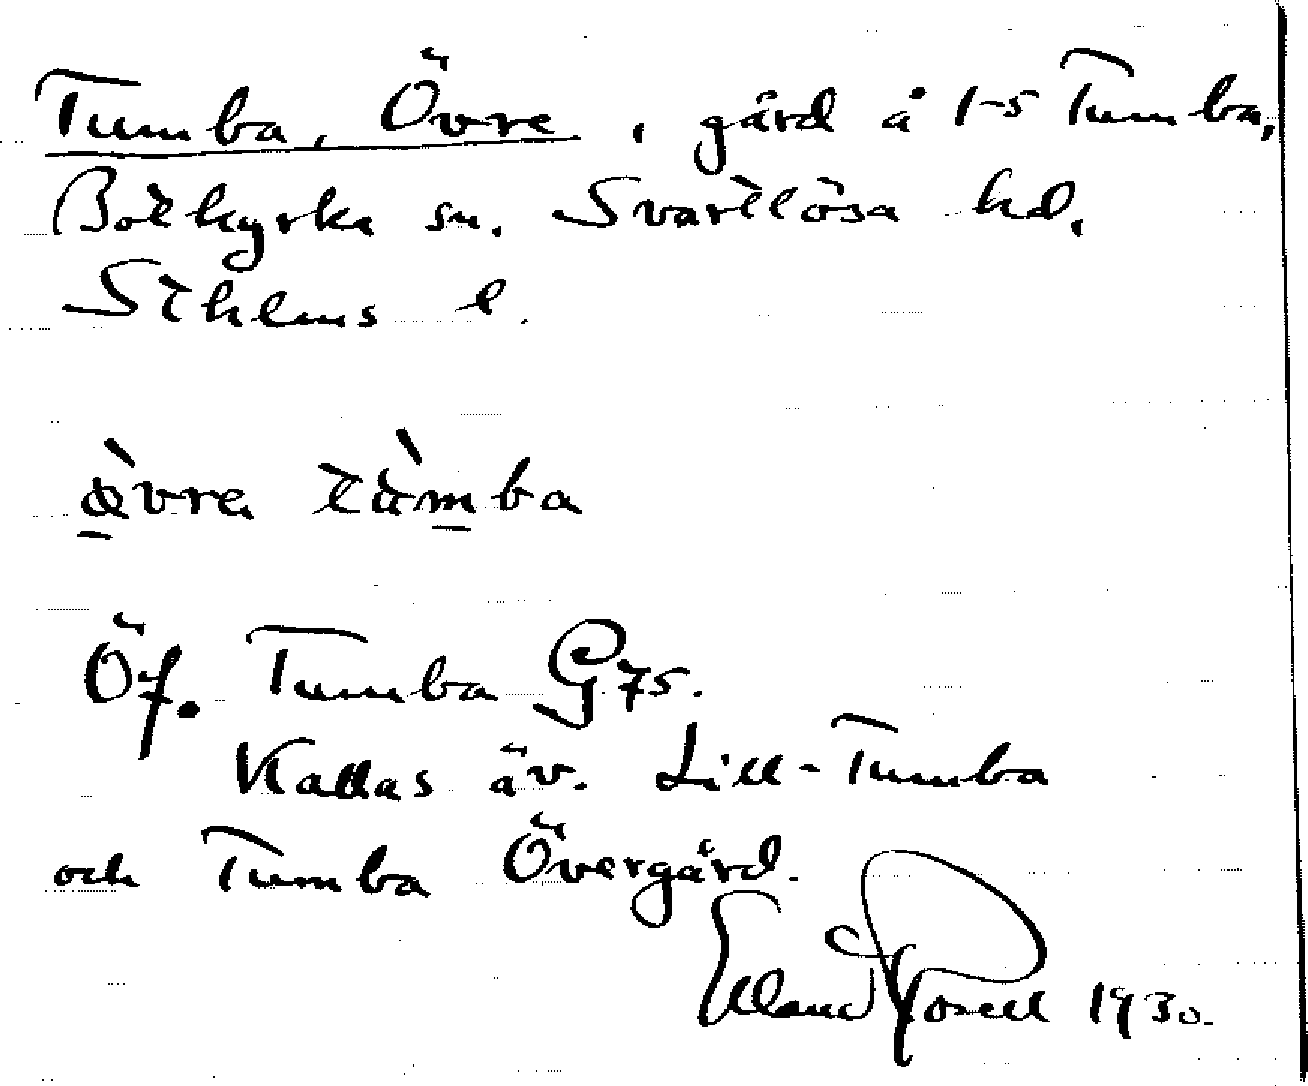 Tumba, Övre, gård å 1-5 Tumba,
Botkyrka sn. Svartlösa hd.
Sthlms l.
ǿ̀vre tùmba
Öf. Tumba G 75.
Kallas äv. Lill-Tumba
och Tumba Övergård.
Erland Rosell 1930.